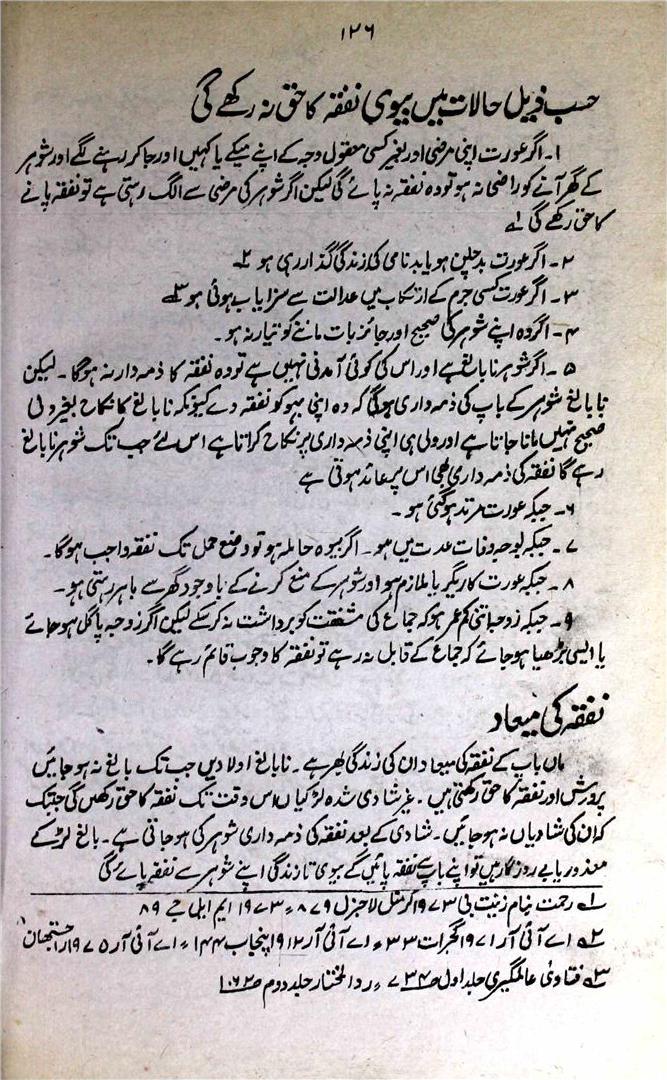 ۱۲۶
حسب ذیل حالات میں بیوی نفقہ کا حق نہ رکھے گی
۱۔ اگر عورت اپنی مرضی اور بغیر کسی معقول وجہ کے اپنے میکے یا کہیں اور جا کر رہنے لگے اور شوہر
کے گھر آنے کو راضی نہ ہو تو وہ نفقہ نہ پائے گی لیکن اگر شوہر کی مرضی سے الگ رہتی ہے تو نفقہ پانے
کا حق رکھے گی ۱؎
۲۔ اگر عورت بدچلن ہو یا بدنامی کی زندگی گذار رہی ہو ۲؎
۳۔ اگر عورت کسی جرم کے ارتکاب میں عدالت سے سزا یاب ہوئی ہو ۳؎
۴۔ اگر وہ اپنے شوہر کی صحیح اور جائز بات ماننے کو تیار نہ ہو۔
۵۔ اگر شوہر نابالغ ہے اور اس کی کوئی آمدنی نہیں ہے تو وہ نفقہ کا ذمہ دار نہ ہوگا۔ لیکن
نابالغ شوہر کے باپ کی ذمہ داری ہوگی کہ وہ اپنی بہو کو نفقہ دے کیونکہ نابالغ کا نکاح بغیر ولی
صحیح نہیں مانا جاتا ہے اور ولی ہی اپنی ذمہ داری پر نکاح کراتا ہے اس لئے جب تک شوہر نابالغ
رہے گا نفقہ کی ذمہ داری بھی اس پر عائد ہوتی ہے
۶۔ جبکہ عورت مرتد ہوگئی ہو۔
۷۔ جبکہ بوجہ وفات عدت میں ہو۔ اگر بیوہ حاملہ ہو تو وضع حمل تک نفقہ واجب ہوگا۔
۸۔ جبکہ عورت کاریگر یا ملازم ہو اور شوہر کے منع کرنے کے باوجود گھر سے باہر رہتی ہو۔
۹۔ جبکہ زوجہ اتنی کم عمر ہو کہ جماع کی مشقت کو برداشت نہ کر سکے لیکن اگر زوجہ پاگل ہو جائے
یا ایسی بڑھیا ہو جائے کہ جماع کے قابل نہ رہے تو نفقہ کا وجوب قائم رہے گا۔
نفقہ کی میعاد
ماں باپ کے نفقہ کی میعاد ان کی زندگی بھر ہے۔ نابالغ اولادیں جب تک بالغ نہ ہو جائیں
پرورش اور نفقہ کا حق رکھتی ہیں۔ غیر شادی شدہ لڑکیاں اس وقت تک نفقہ کا حق رکھیں گی جبتک
کہ ان کی شادیاں نہ ہو جائیں۔ شادی کے بعد نفقہ کی ذمہ داری شوہر کی ہو جاتی ہے۔ بالغ لڑکے
معذور یا بے روزگار ہیں تو اپنے باپ سے نفقہ پائیں گے بیوی تا زندگی اپنے شوہر سے نفقہ پائے گی
۱؎ رحمت بنام زینت بی ۱۹۷۳ کرمنل لا جنرل ۸۷۹، ۱۹۷۳ ایم ایل جے ۸۹
۲؎ اے آئی آر ۱۹۷۱ گجرات ۳۳، اے آئی آر ۱۹۱۲ پنجاب ۱۴۴، اے آئی آر ۱۹۷۵ راجستھان
۳؎ فتاویٰ عالمگیری جلد اول ص ۷۳۴، رد المختار جلد دوم ص ۱۰۶۲